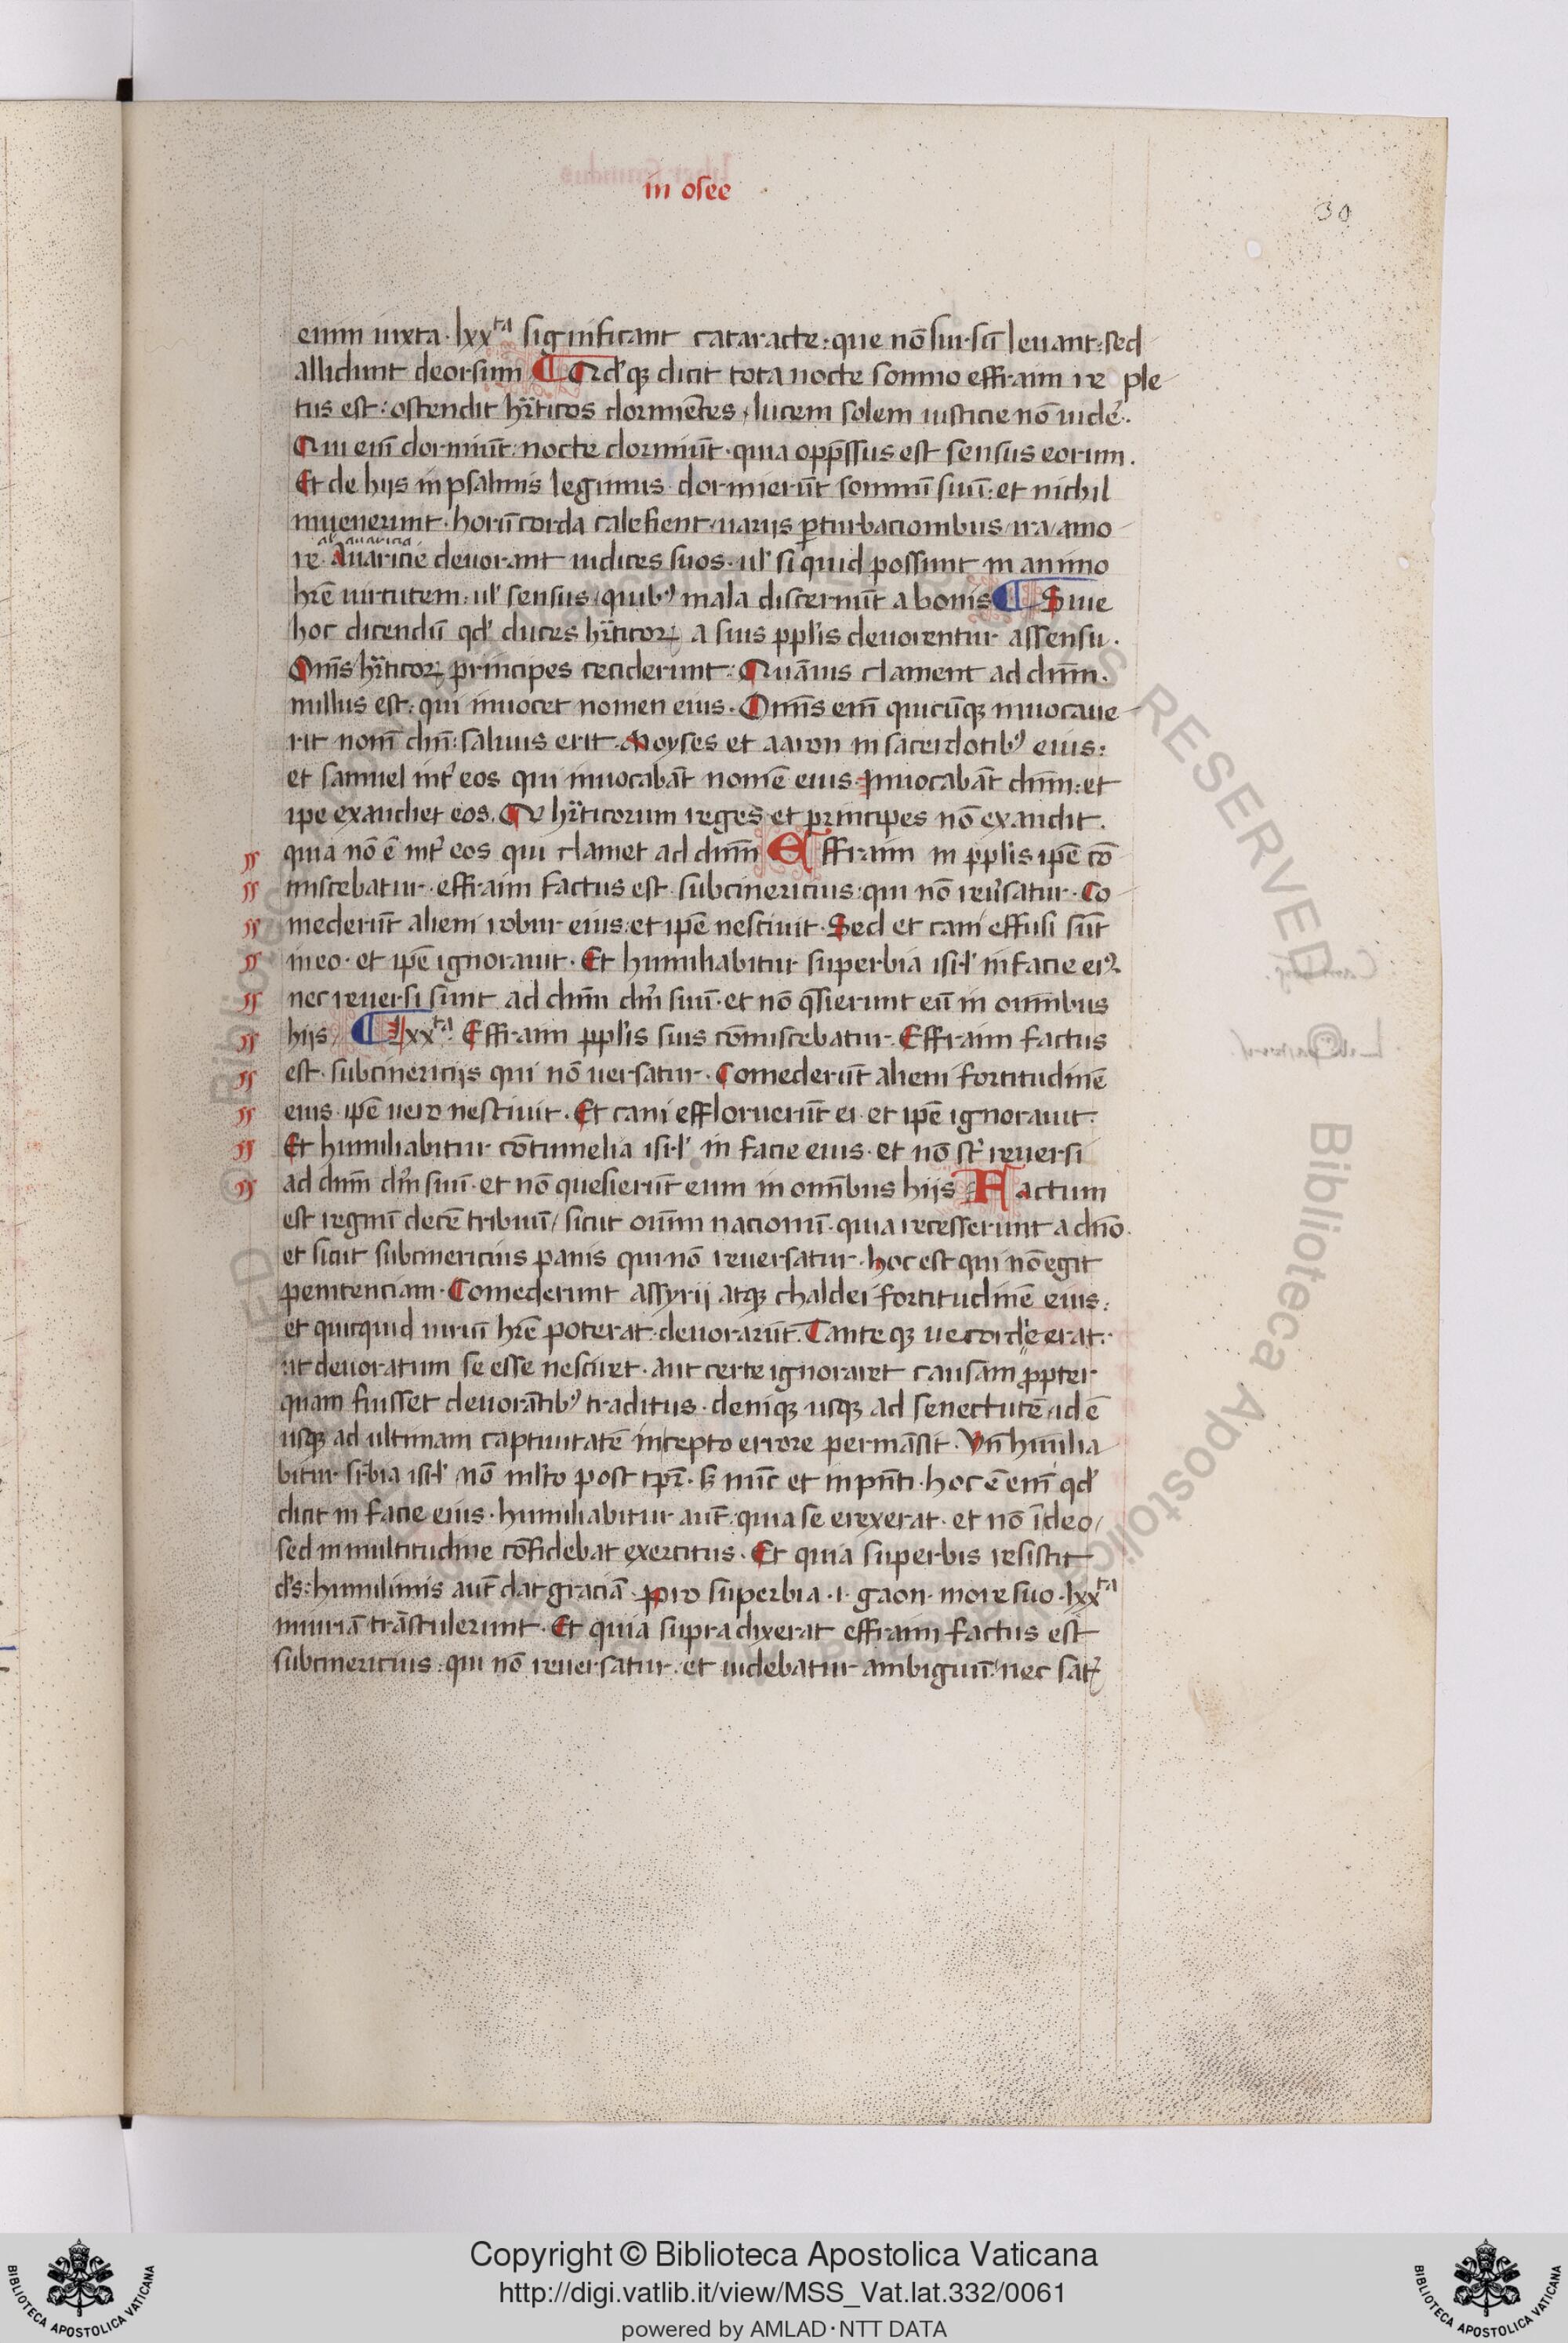 in osee
30
enim iuxta · lxxta significant cataracte : que nō sursū leuant : sed
allidunt deorsum Qd'q; dicit tota nocte somno effraim re ple
tus est : ostendit hr̄ticos dormiētes / lucem solem iusticie nō uide᷒ .
Qui em̄ dormiūt : nocte dormiūt · quia opp̄ssus est sensus eorum .
Et de hijs in psalmis legimus · dormierūt somnū suū : et nichil
inuenerunt · horū corda calefient / uarijs ꝑturbacionibus / ira / amo
al' auaricia
re · Auaricie deuorant iudices suos · ul' si quid possunt in animo
hr̄e uirtutem : ul' sensus / quibꝰ mala discernūt a bonis Siue
hoc dicendū qd' duces hr̄ticoꝝ a suis pplis deuorentur assensu .
Om̄s hr̄ticoꝝ principes ceciderunt : Quāuis clament ad dn̄m .
nullus est : qui inuocet nomen eius . Om̄s em̄ quicūq; inuocaue
rit nom̄ dn̄i : saluus erit . Moyses et aaron in sacerdotibꝰ eius :
et samuel int' eos qui inuocabāt nomē eius . Inuocabāt dn̄m : et
ipe exaudiet eos . At hr̄ticorum reges et principes nō exaudit .
quia nō ē int' eos qui clamet ad dn̄m Effraim in pplis ipē cō
miscebatur · effraim factus est subcinericius : qui nō reu'satur · Co
mederūt alieni robur eius : et ipē nesciuit · Sed et cani effusi sūt
in eo · et ipē ignorauit · Et humiliabitur superbia isr̄l' in facie eiꝰ .
nec reuersi sunt ad dn̄m dm̄ suū · et nō q̄sierunt eū in omnibus
hijs / lxxta · Effraim pplis suis cōmiscebatur · Effraim factus
est · subcinericijs qui nō uersatur · Comederūt alieni fortitudinē
eius · ipē uero nesciuit . Et cani effloruerūt ei · et ipē ignorauit :
Et humiliabitur cōtumelia isr̄l' in facie eius · et nō st̄ reuersi
ad dn̄m dm̄ suū · et nō quesierūt eum in omībus hijs Factum
est regnū decē tribuū / sicut om̄m nacionū · quia recesserunt a dn̄o .
et sicut subcinericius panis qui nō reuersatur · hoc est qui nō egit
penitenciam · Comederunt assyrij atq; chaldei fortitudinē eius :
et quicquid uiriū hr̄e poterat · deuorarūt . Tante q; uecordie erat :
ut deuoratum se esse nesciret · aut certe ignoraret causam ꝓpter
quam fuisset deuorātibꝰ traditus · deniq; usq; ad senectutē / id ē
usq; ad ultimam captiuitatē incepto errore permāsit . Vn̄ humilia
bitur sr̄bia isr̄l' nō ml̄to post tp̄r · s; nūc et in pn̄ti · hoc ē em̄ qd'
dicit in facie eius · humiliabitur aut̄ : quia se erexerat · et nō ī deo /
sed in multitudine cōfidebat exercitus . Et quia superbis resistit
d's : humilimis aut̄ dat graciā · pro superbia · i · gaon · more suo · lxxta
iniuriā trāstulerunt · Et quia supra dixerat effraim factus est
subcinericius : qui nō reuersatur · et uidebatur ambiguū : nec sat᷒
Copyright © Biblioteca Apostolica Vaticana
http://digi.vatlib.it/view/MSS_Vat.lat.332/0061
powered by AMLAD·NTT DATA
BIBLIOTECA APOSTOLICA VATICANA
BIBLIOTECA APOSTOLICA VATICANA